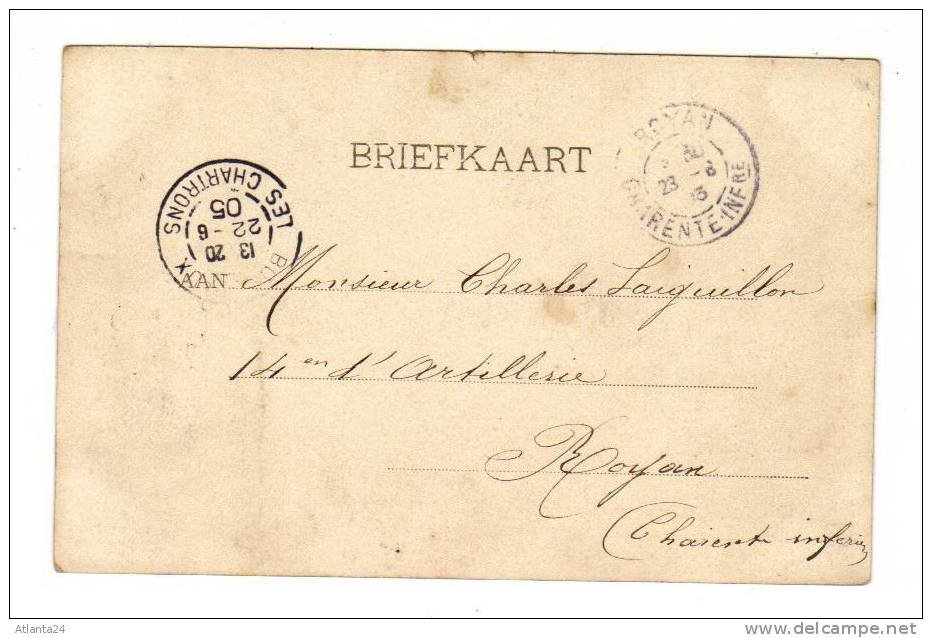 BRIEFKAART
ROYAN
23
CHARENTE-INFRE
LES CHARTRONS
13 20
22 - 6
05
AAN Monsieur Charles Laiguillon
14 en d'Artillerie
Royan
(Charente inferie
Atlanta24
www.delcampe.net